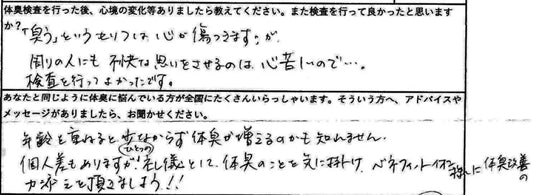 体臭検査を行った後、心境の変化等ありましたら教えてください。また検査を行って良かったと思いますか？
「臭う」というセリフは、心が傷つきますが、
周りの人にも不快な思いをさせるのは、心苦しいので…。
検査を行ってよかったです。
あなたと同じように体臭に悩んでいる方が全国にたくさんいらっしゃいます。そういう方へ、アドバイスやメッセージがありましたら、お聞かせください。
年齢を重ねると少なからず体臭が増えるのかも知れません。
個人差もありますが！ひとつの礼儀として、体臭のことを気に掛け、ベネフィットイオン 体臭改善の
力添えを頂きましょう！！